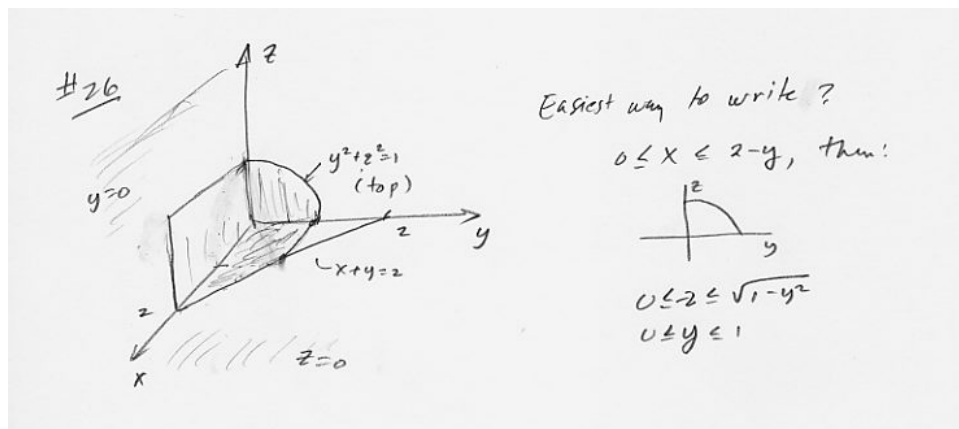 #26
z
y²+z²=1
(top)
y=0
2
y
x+y=2
2
x
z=0
Easiest way to write?
0≤x≤2-y, then:
z
y
0≤z≤√1-y²
0≤y≤1